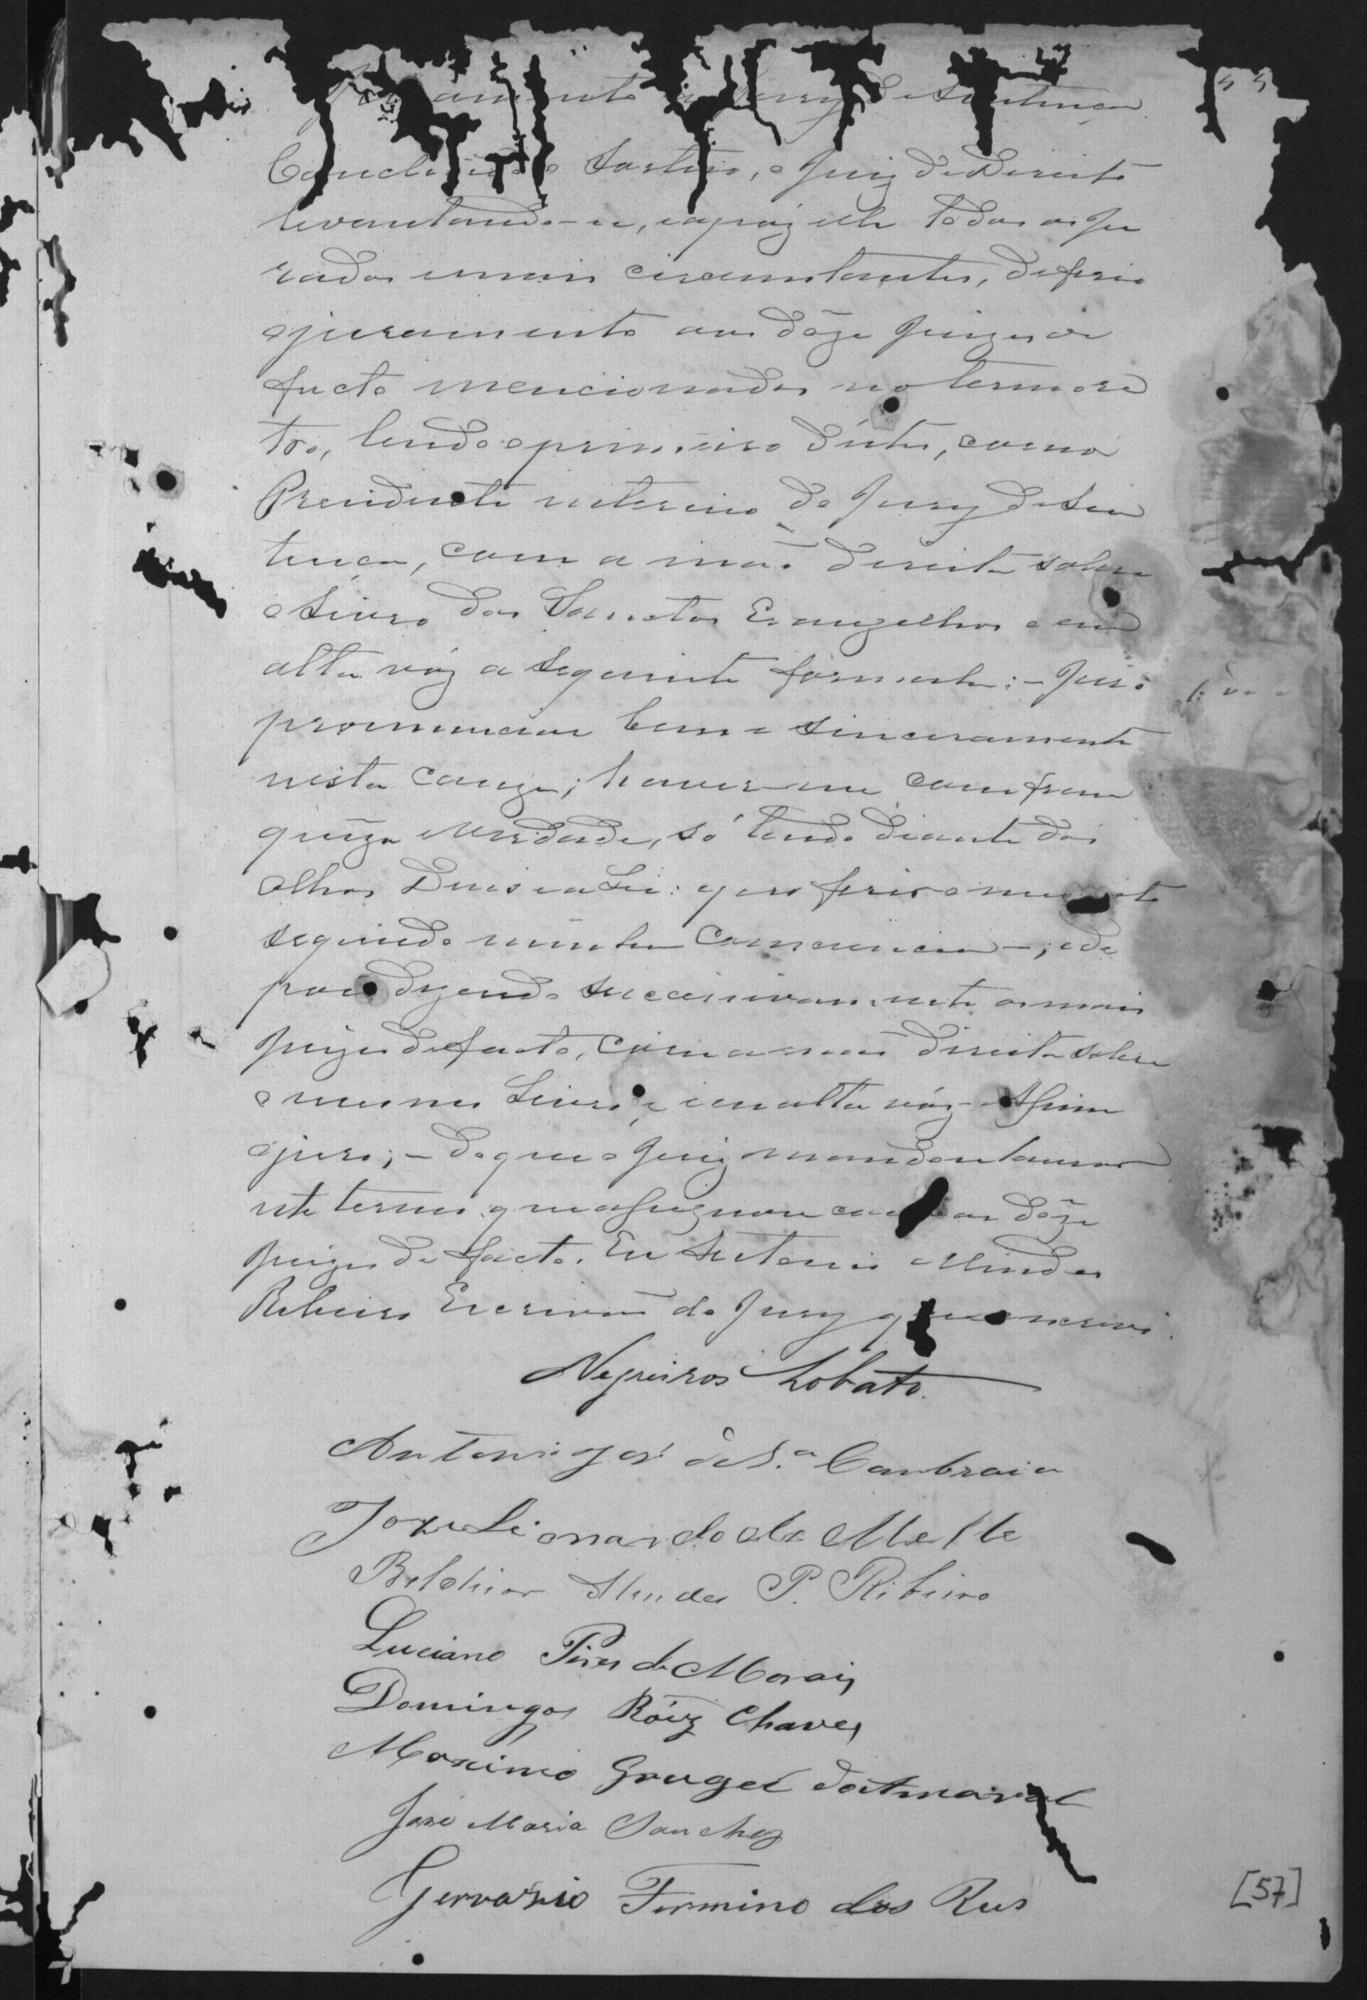 Juramento do Jury de Sentença
Concluido o sorteio, o Juiz de Direito
levantando-se, e apoz elle todos os ju
rados e mais circumstantes, deferio
o juramento aos dôze Juizes de
facto mencionados no termo re
tro, lendo o primeiro d'estes, como
Presidente interino do Jury de Sen
tença, com a mão direita sobre
o Livro dos Sanctos Evangelhos e em
alta vóz a seguinte fórmula: - Juro
pronunciar bem e sinceramente
nesta cauza; haver-me com fran
quêza e verdade, só tendo diante dos
olhos Deus e a Lei: e proferir o meu voto
segundo minha consciencia -; e de
pois dizendo successivamente os mais
Juizes de facto, com a mão direita sobre
o mesmo Livro, e em alta vóz - Assim
o juro; - do que o Juiz mandou lavrar
este termo que assignou com os dôze
Juizes de facto. Eu Antonio Mendes
Ribeiro Escrivão do Jury que o escrevi.
Negreiros Lobato
Antonio José de S.ª Cambraia
Joze Lionardo de Mello
Belchior Mendes P. Ribeiro
Luciano Pires de Morais
Domingos Róiz Chaves
Maximo Gougel do Amaral
José Maria Sanches
Gervazio Formino dos Reis
[57]